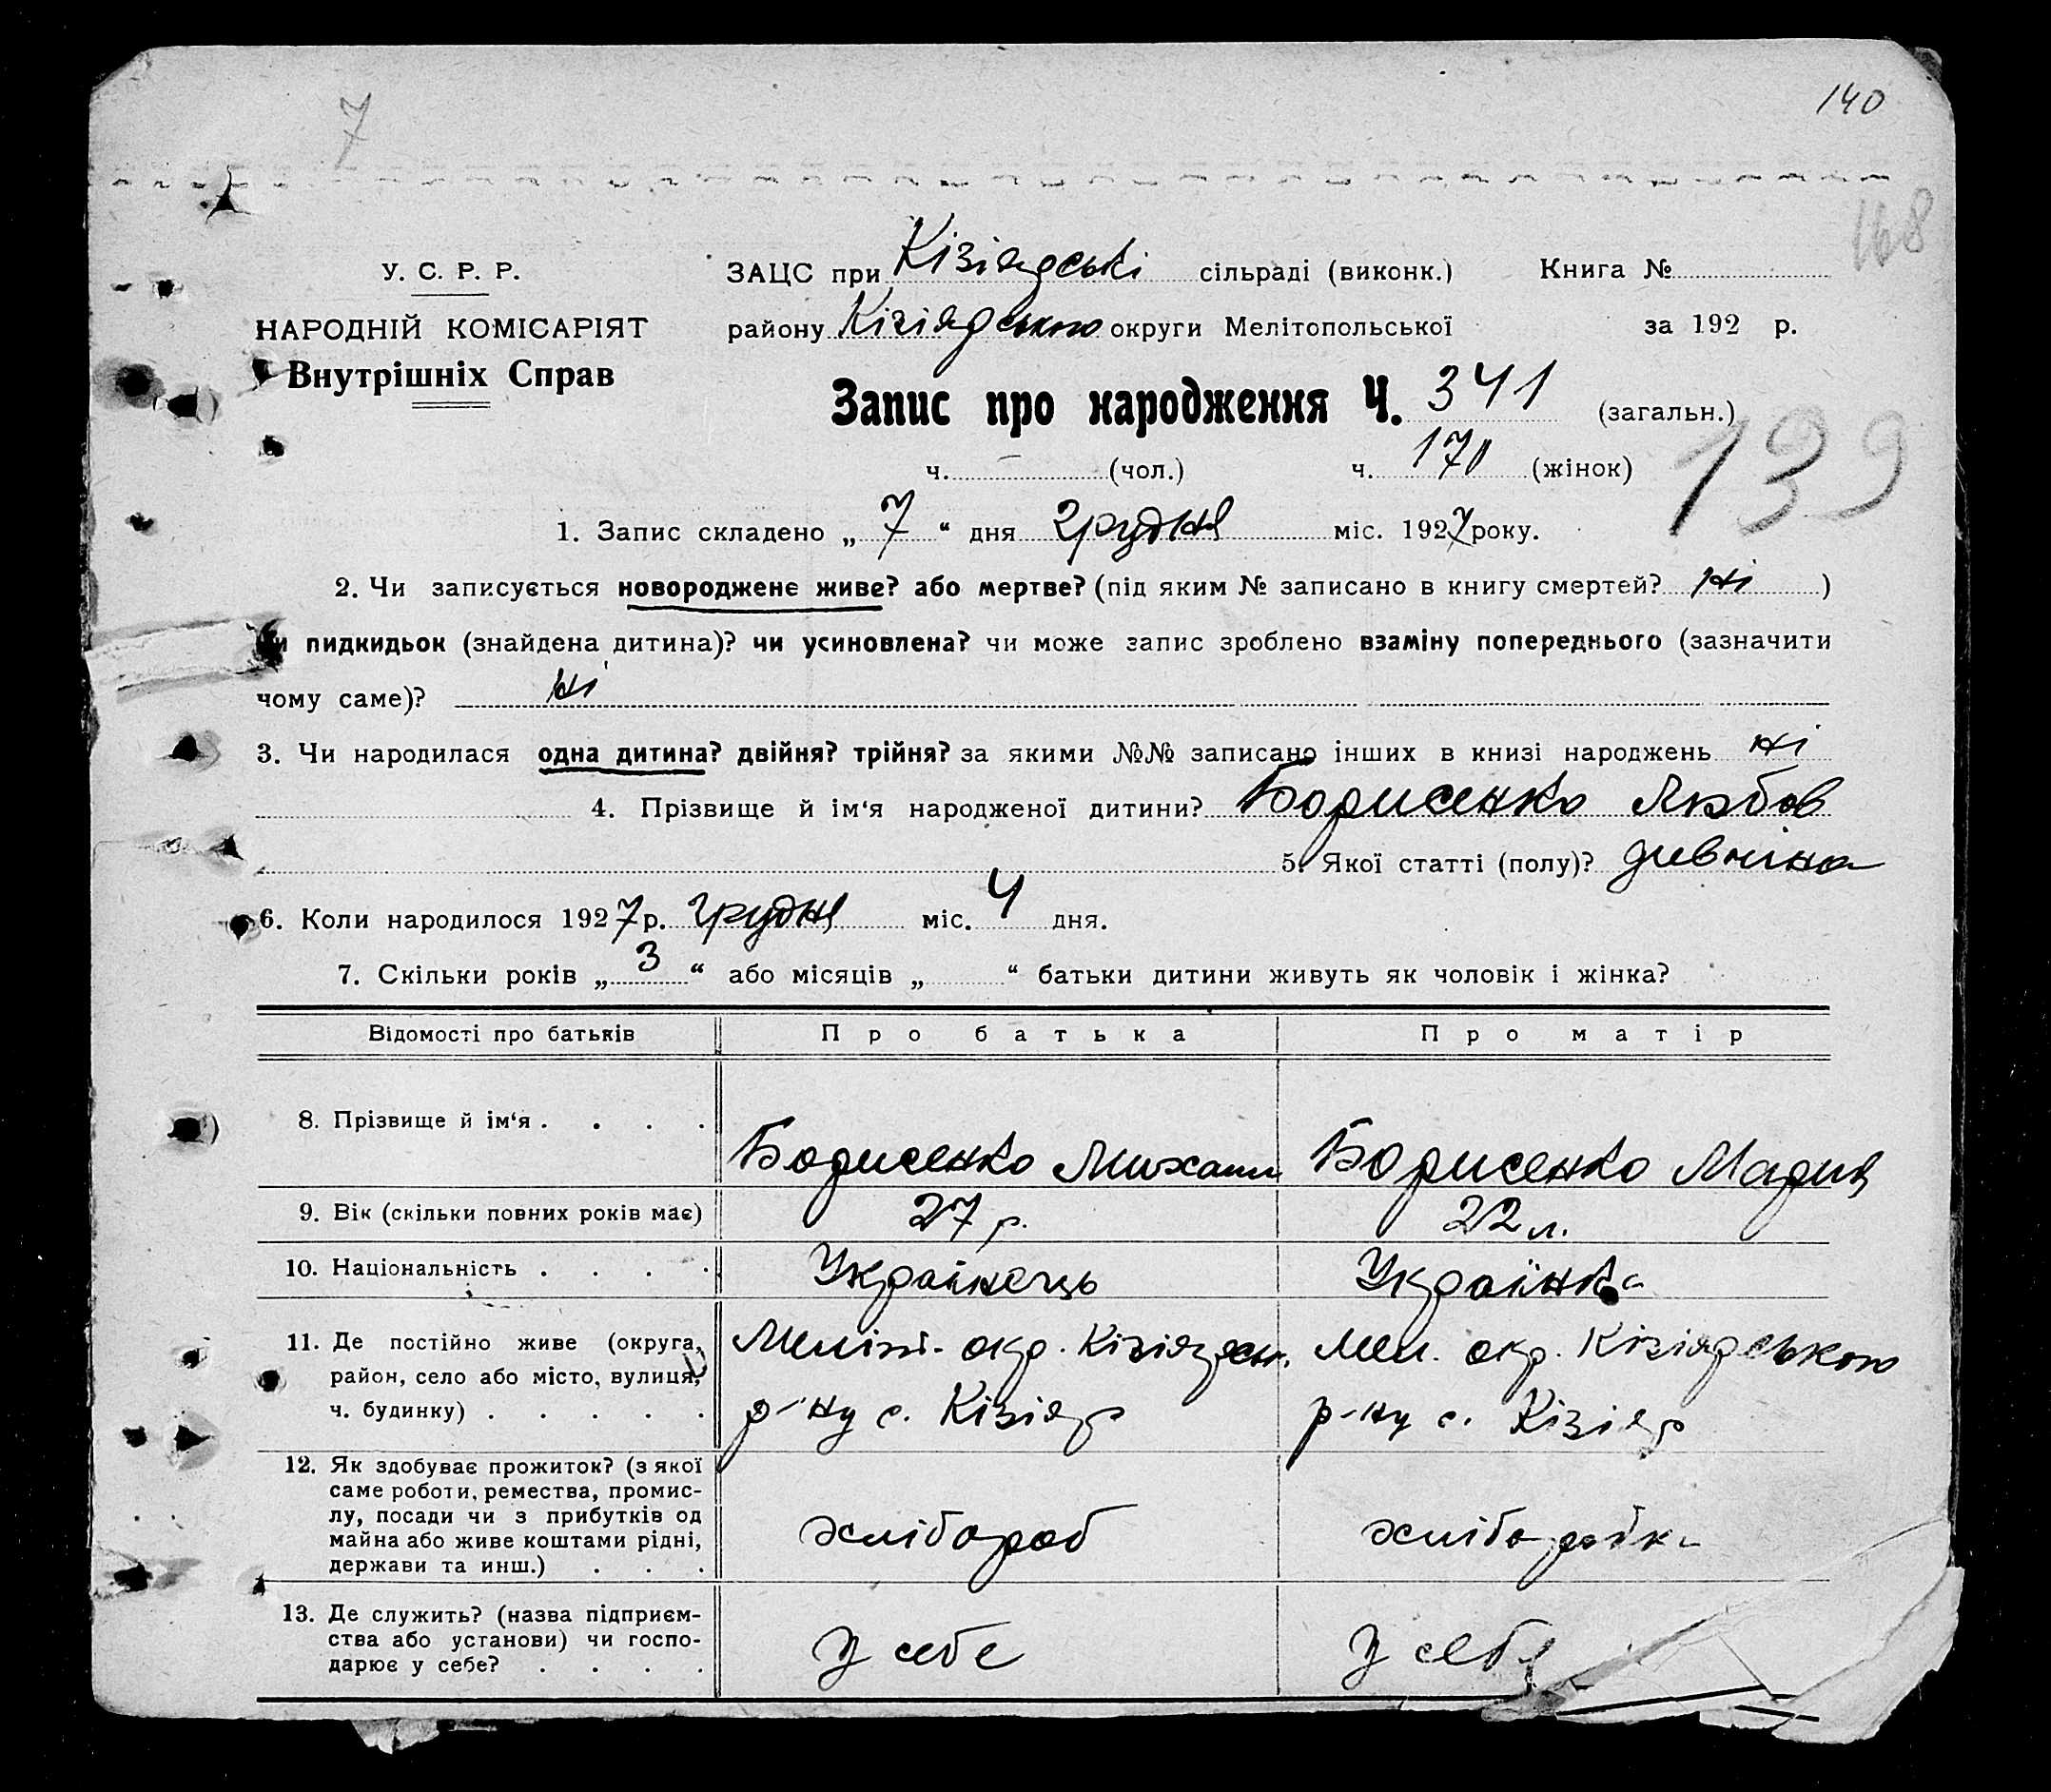 7
140
168
У. С. Р. Р.
НАРОДНІЙ КОМІСАРІЯТ
Внутрішніх Справ
ЗАЦС при Кізіярські сільраді (виконк.) Книга №
району Кізіярського округи Мелітопольської за 192 р.
Запис про народження Ч. 341 (загальн.)
139
ч. — (чол.) ч. 170 (жінок)
1. Запис складено „ 7 “ дня грудня міс. 1927 року.
2. Чи записується новороджене живе? або мертве? (під яким № записано в книгу смертей? ні )
чи пидкидьок (знайдена дитина)? чи усиновлена? чи може запис зроблено взаміну попереднього (зазначити
чому саме)? ні
3. Чи народилася одна дитина? двійня? трійня? за якими №№ записано інших в книзі народжень ні
4. Прізвище й ім‘я народженої дитини? Борисенко Любов
5. Якої статті (полу)? дивчина
6. Коли народилося 1927 р. грудня міс. 4 дня.
7. Скільки років „ 3 “ або місяців „ “ батьки дитини живуть як чоловік і жінка?
Відомості про батьків Про батька Про матір
8. Прізвище й ім‘я . . . . Борисенко Михаил Борисенко Мария
9. Вік (скільки повних років має) 27 р. 22 л.
10. Національність . . . . Українець Українка
11. Де постійно живе (округа, Меліт. окр. Кізіярськ. Мел. окр. Кізіярського
район, село або місто, вулиця,
ч. будинку) . . . . . р-ну с. Кізіяр р-ну с. Кізіяр
12. Як здобуває прожиток? (з якої
саме роботи, ремества, промис-
лу, посади чи з прибутків од
майна або живе коштами рідні,
держави та инш.) . . . хлібороб хліборобка
13. Де служить? (назва підприєм-
ства або установи) чи госпо-
дарює у себе? . . . . У себе У себе